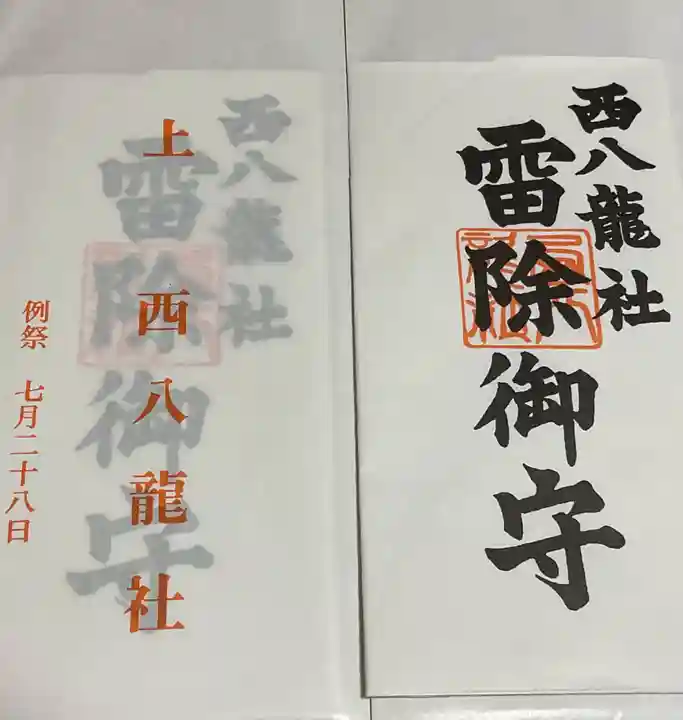 西八龍社
雷除御守
上西八龍社
例祭 七月二十八日
西八龍社
雷除御守